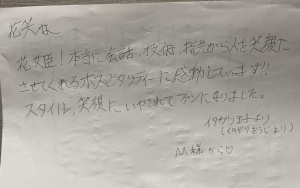 花笑な
花姫!本当に会話、技術、指先から人を笑顔に
させてくれるホスピタリティーに感動しています!!
スタイル、笑顔にいやされてファンになりました。
イタガリ王子より
(イタガリおうじより)
M様から♡